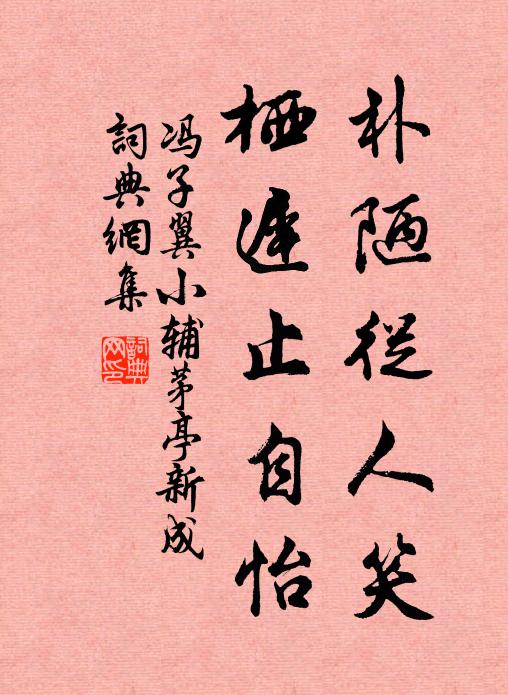 朴陋従人笑
栖遲止自怡
冯子翼小辅茅亭新成
詞典網集
詞典网印